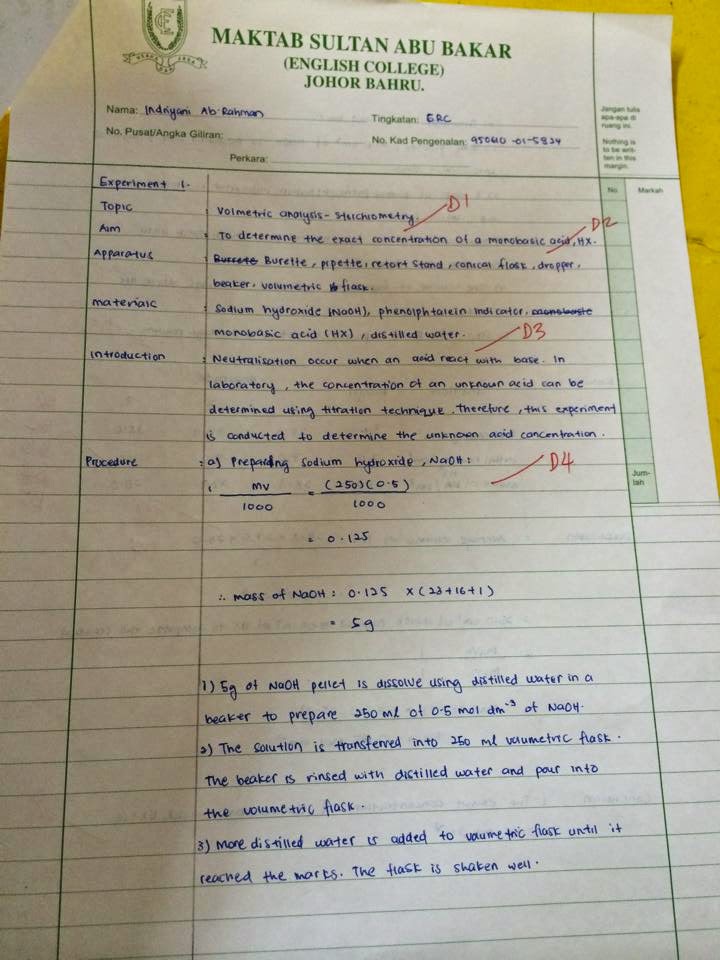 MAKTAB SULTAN ABU BAKAR
(ENGLISH COLLEGE)
JOHOR BAHRU.
Nama: Indriyani Ab. Rahman Tingkatan: ERC
No. Pusat/Angka Giliran: No. Kad Pengenalan: 950610-01-5824
Perkara:
Jangan tulis
apa-apa di
ruang ini.
Nothing is
to be writ-
ten in this
margin.
No. Markah
Experiment 1.
Topic : Volmetric analysis - Stoichiometry. D1
Aim : To determine the exact concentration of a monobasic acid, HX. D2
Apparatus : Burette, pipette, retort stand, conical flask, dropper,
beaker, volumetric flask.
Materials : Sodium hydroxide (NaOH), phenolphtalein indicator,
monobasic acid (HX), distilled water. D3
Introduction : Neutralisation occur when an acid react with base. In
laboratory, the concentration of an unknown acid can be
determined using titration technique. Therefore, this experiment
is conducted to determine the unknown acid concentration.
Procedure : a) Preparing sodium hydroxide, NaOH: D4
MV = (250)(0.5)
1000 1000
= 0.125
Jum-
lah
∴ mass of NaOH : 0.125 x (23+16+1)
= 5g
1) 5g of NaOH pellet is dissolve using distilled water in a
beaker to prepare 250 ml of 0.5 mol dm⁻³ of NaOH.
2) The solution is transferred into 250 ml volumetric flask.
The beaker is rinsed with distilled water and pour into
the volumetric flask.
3) More distilled water is added to volumetric flask until it
reached the marks. The flask is shaken well.